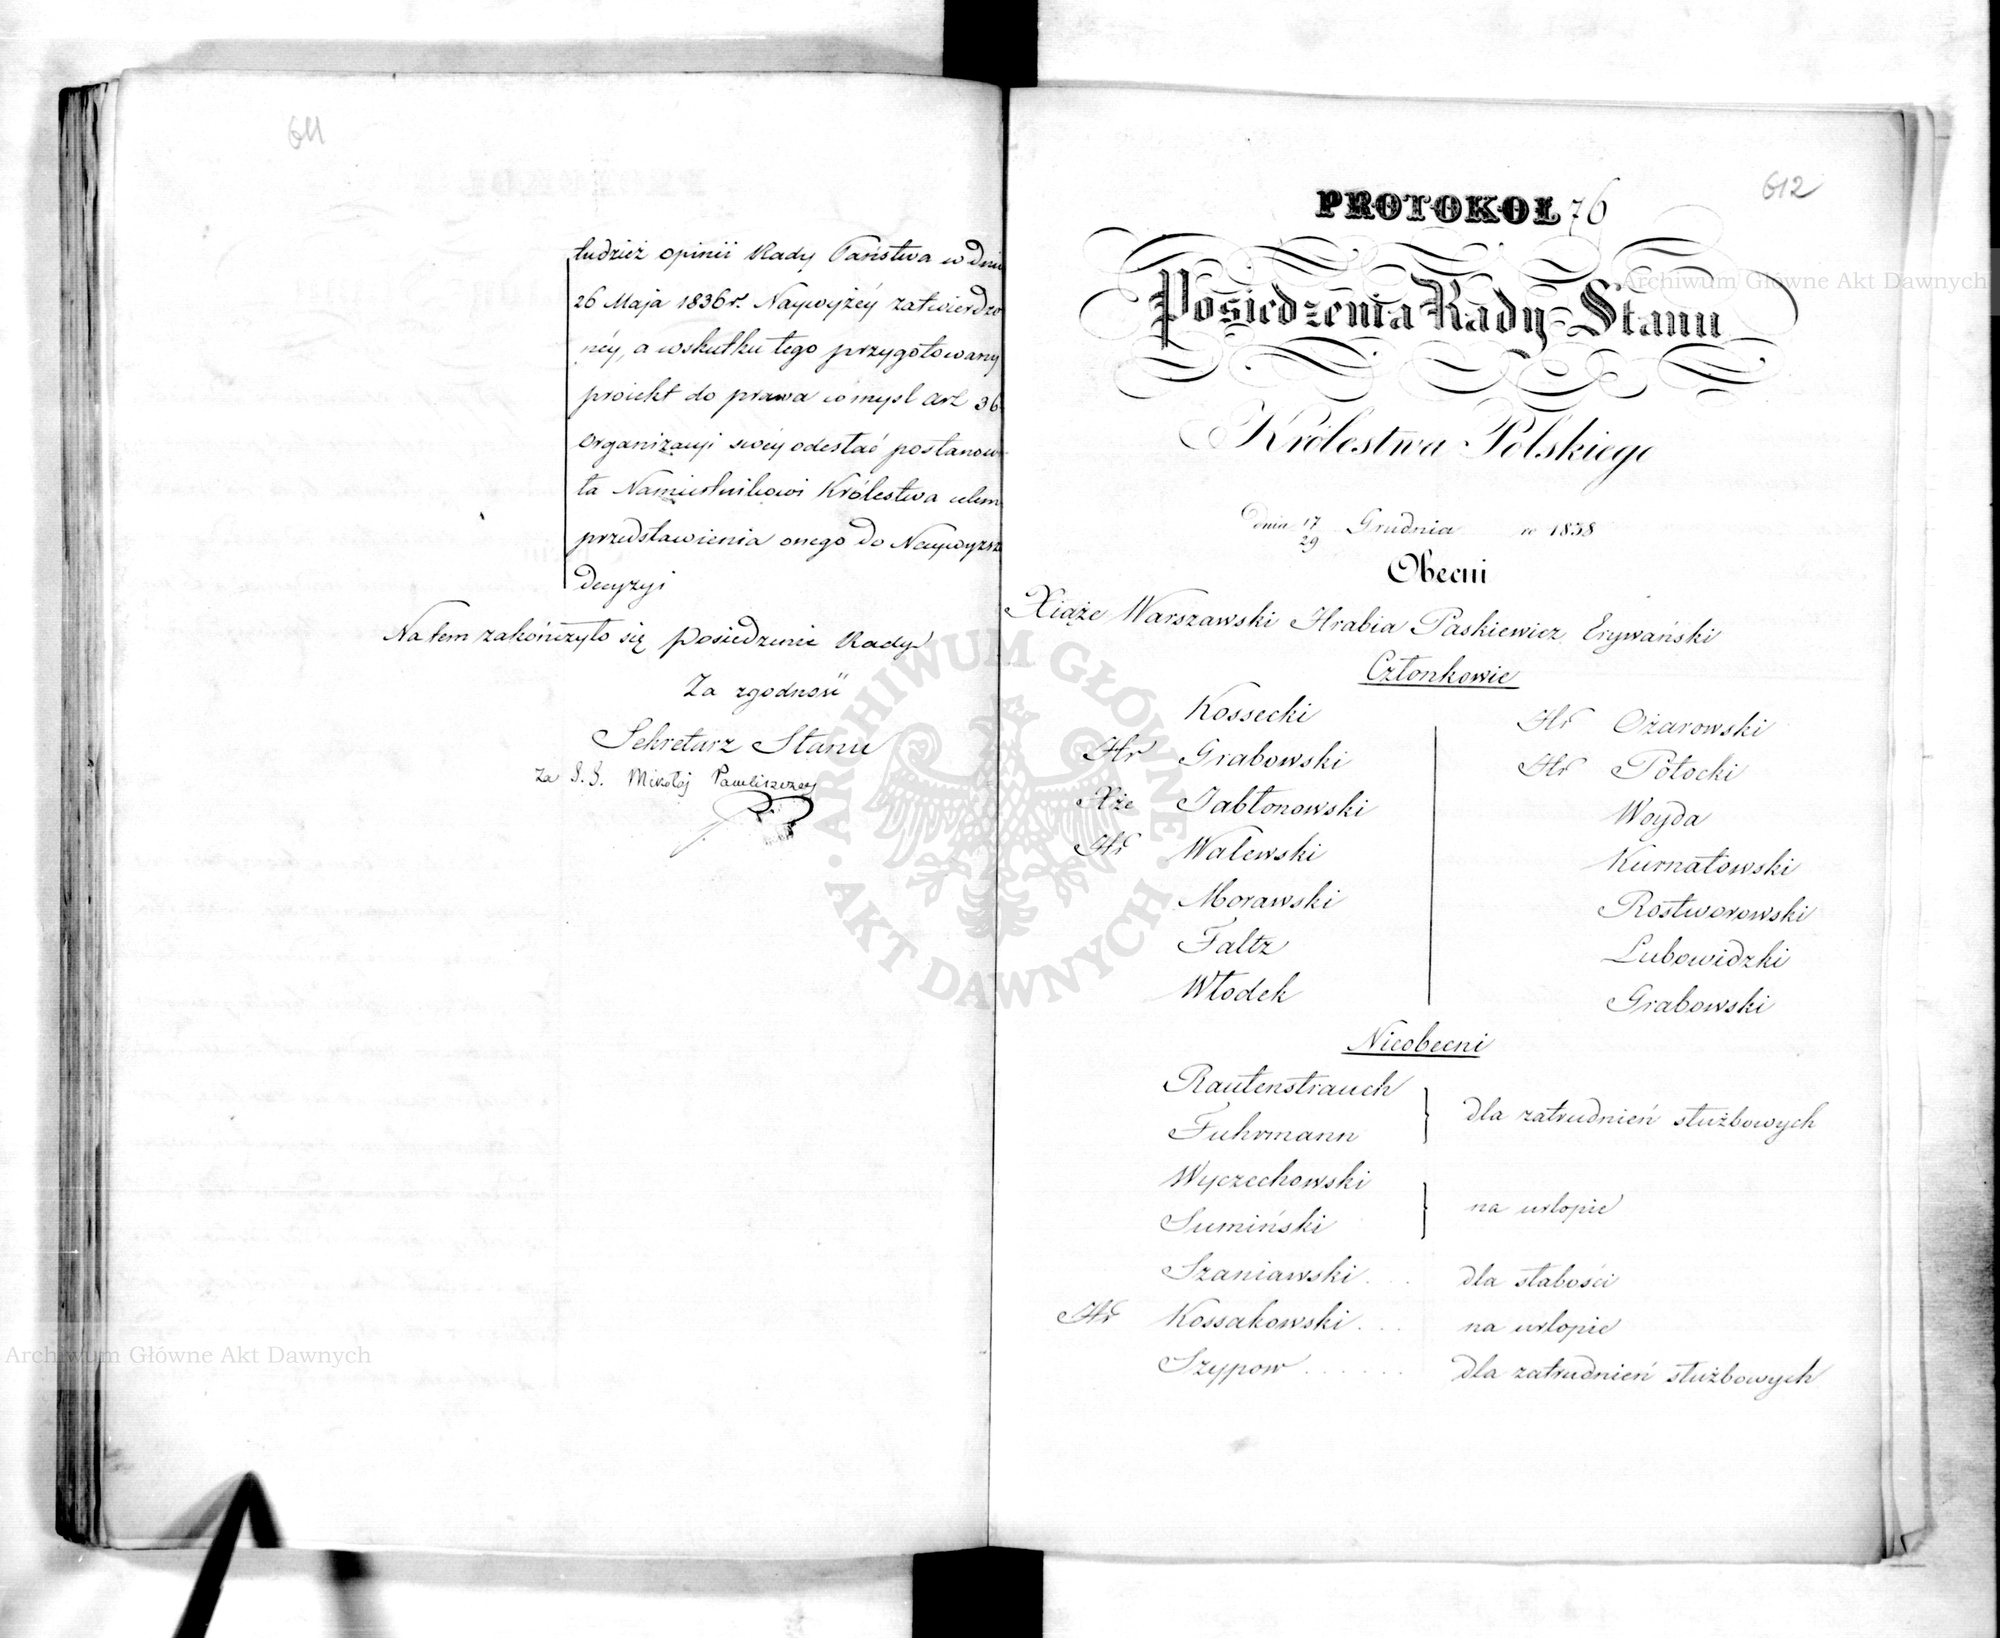 611
tudzież opinii Rady Państwa w dniu
26 Maja 1836 r. Naywyżéy zatwierdzo
néy, a wskutku tego przygotowany
proiekt do prawa w mysl art 36
Organizacyi swéy odesłać postanow
ła Namiestnikowi Królestwa celem
przedstawienia onego do Naywyższ
decyzyi
Na tem zakończyło się posiedzenie Rady
Za zgodność
Sekretarz Stanu
za S. S. Mikołaj Pawliszczew
612
PROTOKOŁ 76
Posiedzenia Rady Stanu
Królestwa Polskiego
dnia 17/29 Grudnia w 1838
Obecni
Xiąże Warszawski Hrabia Paskiewicz Erywański
Członkowie
Kossecki
Hr Grabowski
Xże Jabłonowski
Hr Walewski
Morawski
Faltz
Włodek
Hr Ożarowski
Hr Potocki
Woyda
Kurnatowski
Rostworowski
Lubowidzki
Grabowski
Nieobecni
Rautenstrauch
Fuhrmann
dla zatrudnień służbowych
Wyczechowski
Sumiński
na urlopie
Szaniawski . . . dla słabości
Hr Kossakowski . . . na urlopie
Szypow . . . . . . dla zatrudnień służbowych
Archiwum Główne Akt Dawnych
ARCHIWUM GŁÓWNE
AKT DAWNYCH
Archiwum Główne Akt Dawnych